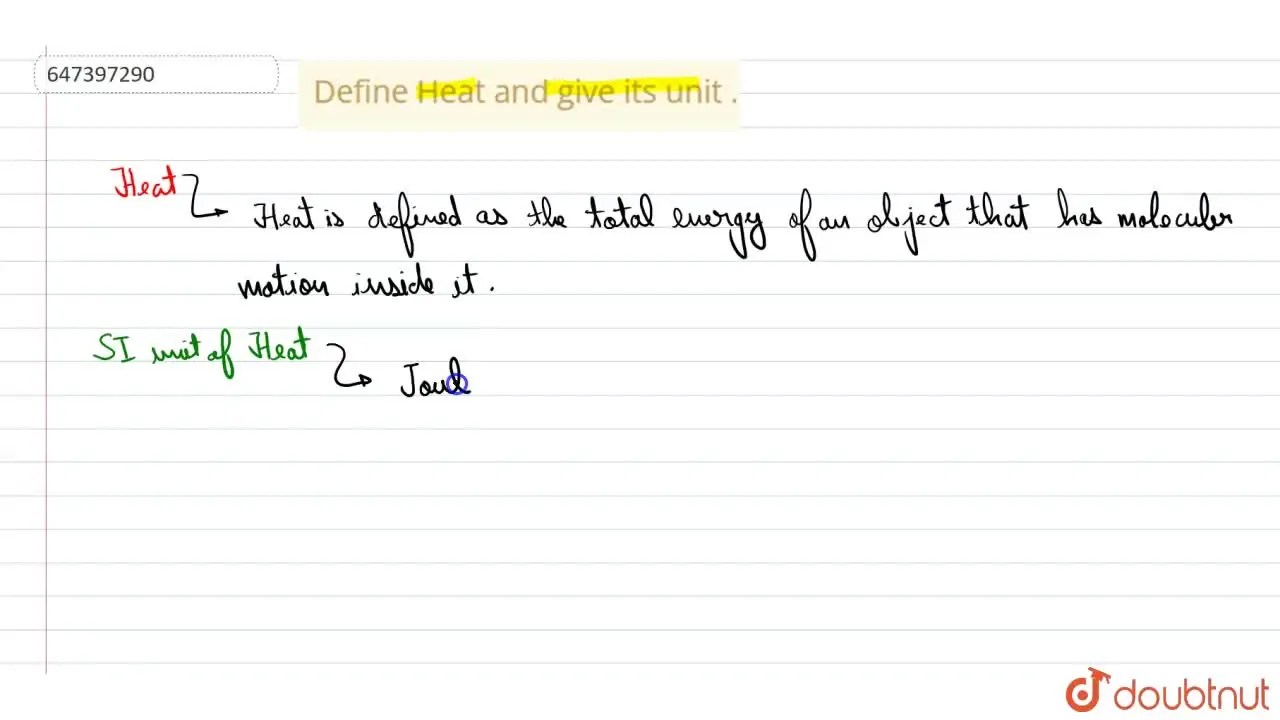 647397290
Define Heat and give its unit .
Heat
Heat is defined as the total energy of an object that has molecular
motion inside it.
SI unit of Heat
Joule
doubtnut